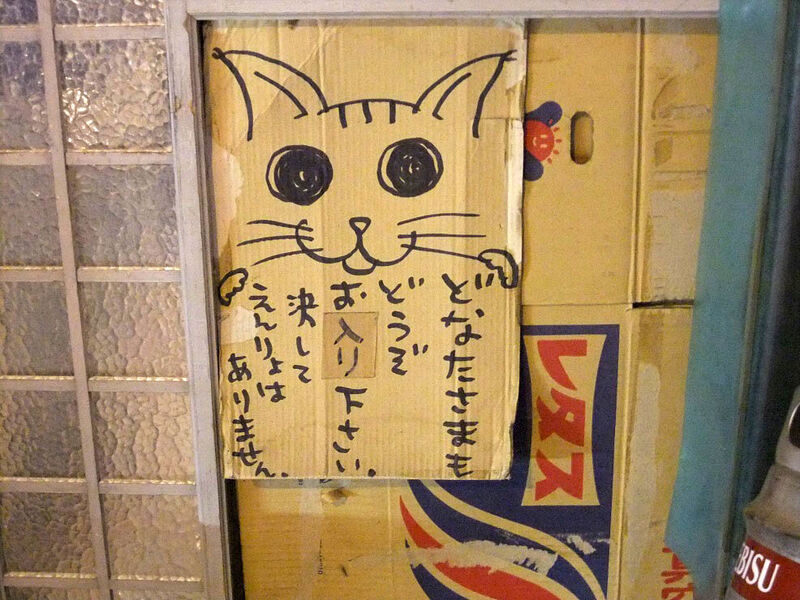 どなたさまも
どうぞ
お入り下さい。
決して
えんりょは
ありません。
レタス
BISU